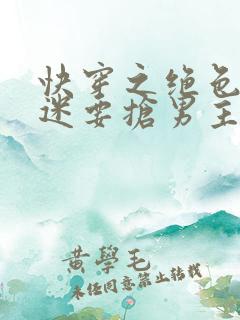 快穿之绝色
迷要搶男主
黄學毛
未经同意禁止转载